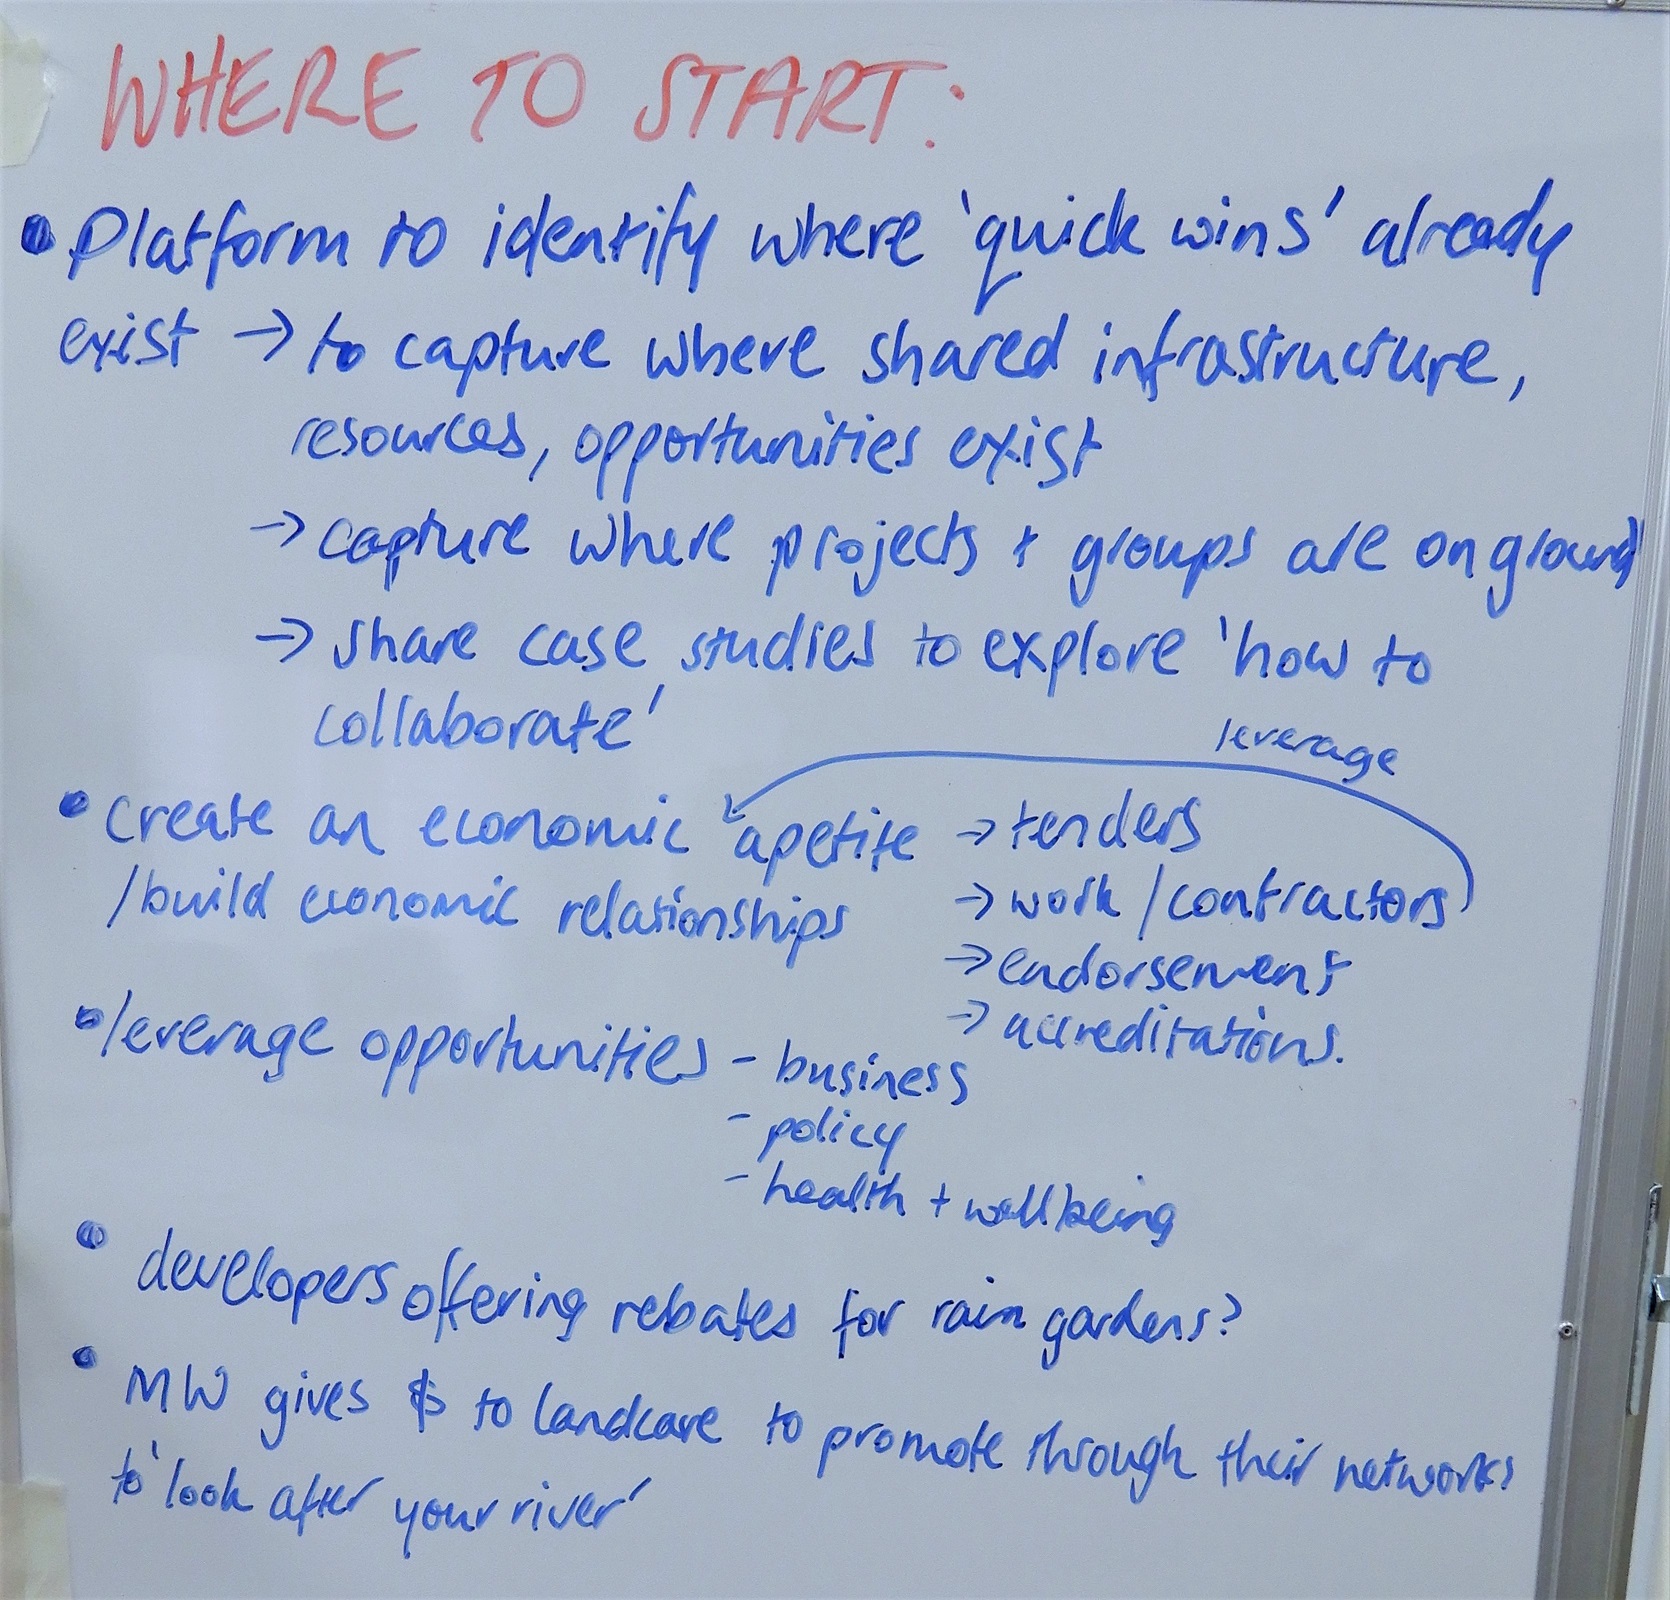 WHERE TO START:
• Platform to identify where 'quick wins' already
exist → to capture where shared infrastructure,
resources, opportunities exist
→ capture where projects + groups are on ground
→ share case studies to explore 'how to
collaborate'
leverage
• create an economic apetite → tenders
/build economic relationships → work / contractors
→ endorsement
→ accreditations.
• leverage opportunities - business
- policy
- health + wellbeing
• developers offering rebates for rain gardens?
• MW gives $ to landcare to promote through their networks
to 'look after your river'